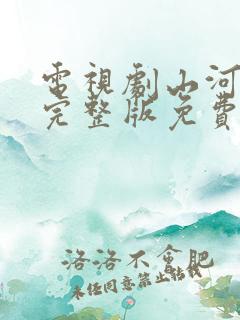 電視劇山河
完整版免費
洛洛不會肥
未任同意禁止转载